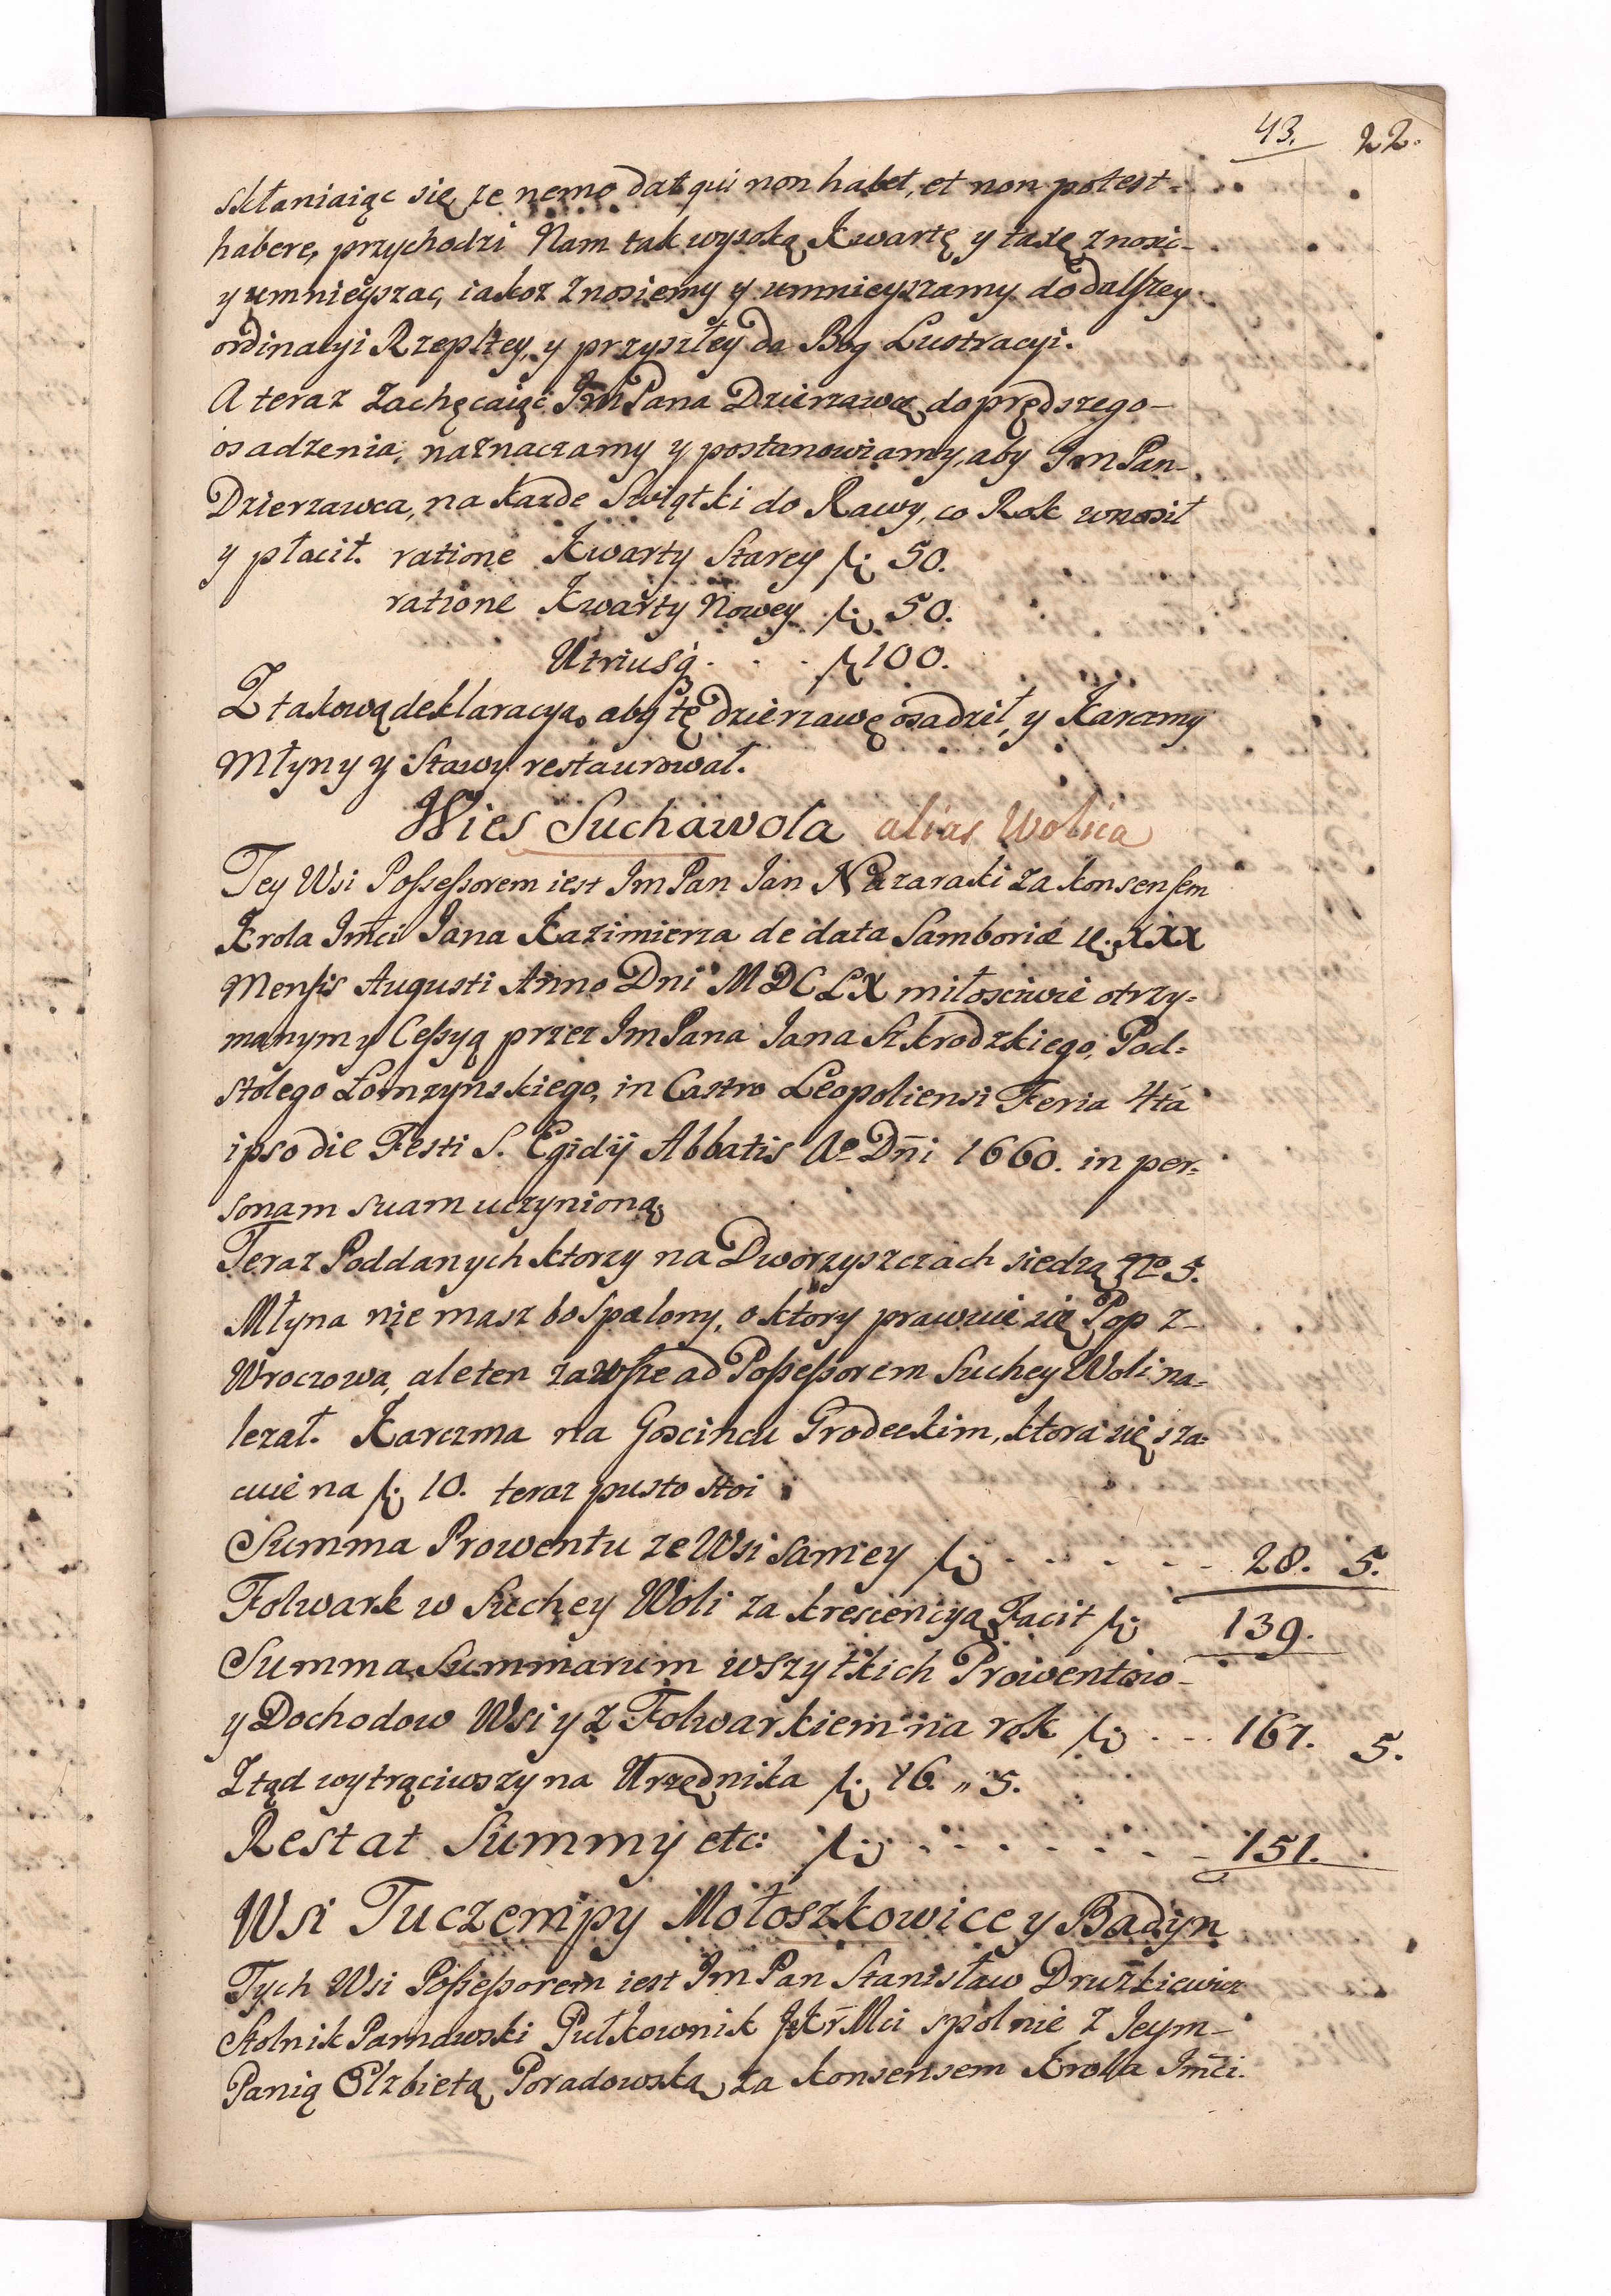 43. 22.
skłaniaiąc się ze nemo dat qui non habet, et non potest=
habere, przychodzi Nam tak wysoką Kwartę y taxę znosic-
y umnieyszac, iakoz znosiemy y umnieyszamy do dalszey
ordinacyi Rzepltey, y przyszłey da Bog Lustracyi.
A teraz zachęcaiąc Im Pana Dzierzawcę do prędszego-
osadzenia, naznaczamy y postanowiamy, aby Im Pan-
Dzierzawca, na kazde Swiątki do Rawy, co Rok wnosił
y płacił. ratione Kwarty Starey f. 50.
ratione Kwarty Nowey f. 50.
Utriusq. . . . f. 100.
Z takową deklaracyą, aby tę dzierzawę osadził, y Karczmy
Młyny y Stawy restaurował.
Wies Suchawola alias Wolica
Tey Wsi Possessorem iest Im Pan Jan Nazaraki za konsensem
Krola Imci Jana Kazimierza de data Samboriæ XXX
Mensis Augusti Anno Dni MDCLX miłosciwie otrzy=
manym y Cessyą przez Im Pana Jana Szkrodzkiego, Pod=
stolego Łomzynskiego, in Castro Leopoliensi Feria 4ta
ipso die Festi S. Egidij Abbatis Ao Dni 1660. in per=
sonam suam uczynioną
Teraz Poddanych ktorzy na Dworzyszczach siedzą No 5.
Młyna nie masz bo spalony, o ktory prawuie się Pop z-
Wroczowa, ale ten zawsze ad Possessorem Suchey Woli na=
lezał. Karczma na Goscincu Grodeckim, ktora się sza=
cuie na f. 10. teraz pusto stoi
Summa Prowentu ze Wsi samey f. - - - - - 28. 5.
Folwark w Suchey Woli za krescencyą Facit f. 139.
Summa Summarum wszytkich Prowentow-
y Dochodow Wsi y z Folwarkiem na rok f. . - - 167. 5.
Ztąd wytrąciwszy na Urzędnika f. 16. „ 5.
Restat Summy etc: f. - - - - - - 151.
Wsi Tuczempy Mołoszkowice y Badyn
Tych Wsi Possessorem iest Im Pan Stanisław Druszkiewicz
Stolnik Parnawski Pułkownik JKr Mci spolnie z Jeym-
Panią Elzbietą Poradowską za konsensem Krola Imci.